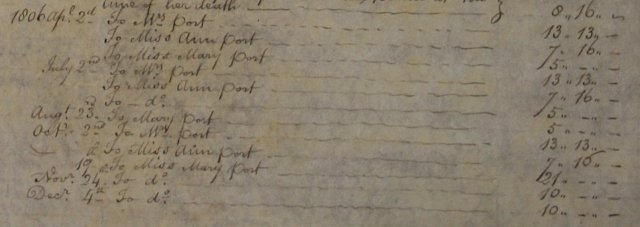 time of her death 8,, 16,, –
1806 Apl. 2d To Mrs Port 13,, 13,, –
To Miss Ann Port 7,, 16,, –
To Miss Mary Port 5,, – –
July 2nd To Mrs Port 13,, 13,, –
To Miss Ann Port 7,, 16,, –
To – do. 5,, – –
Augt. 23. To Mary Port 5,, – –
Octr. 2nd To Mrs Port 13,, 13,, –
To Miss Ann Port 7,, 16,, –
19 To Miss Mary Port 21,, – –
Novr. 24. To do. 10,, – –
Decr. 4th To do. 10,, – –